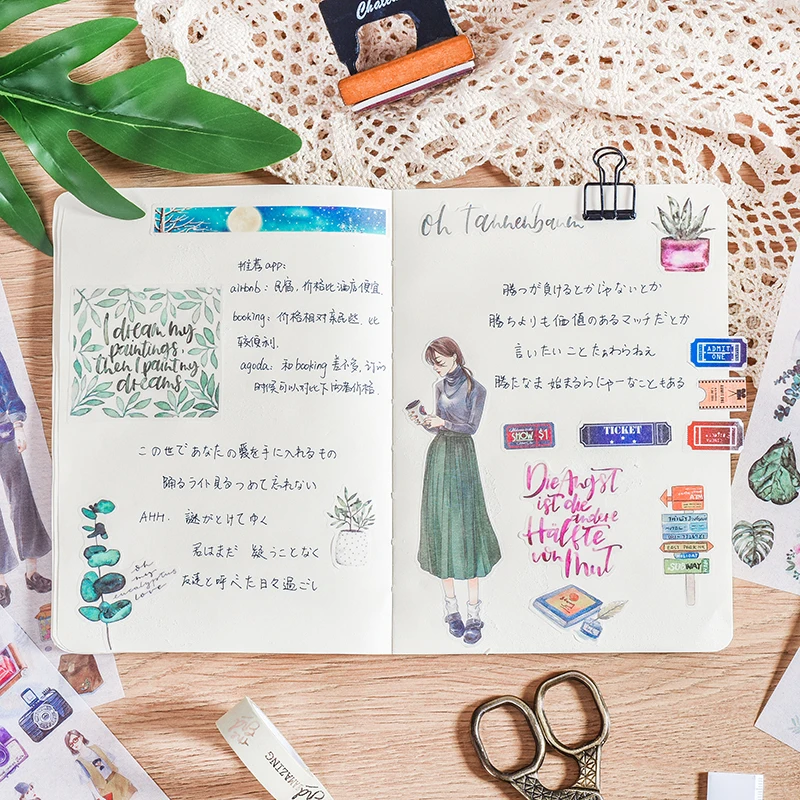 oh Tannenbaum
推荐app:
airbnb: 民宿,价格比酒店便宜.
booking: 价格相对亲民些,比
较便利.
agoda: 和booking差不多,订的
时候可以对比下的看价格.
I dream my
paintings,
then I paint my
dreams
この世であなたの愛を手に入れるもの
踊るライト見るつめて忘れない
AHH. 謎がとけてゆく
君はまだ 疑うことなく
友達と呼べた日々過ごし
oh
my
eucalyptus
love
勝つが負けるとかじゃないとか
勝ちよりも価値のあるマッチだとか
言いたいことたぁわらねえ
勝たなま 始まるらにゃーなこともある
ADMIT
ONE
SHOW $1
TICKET
Die Angst
ist die
andere
Hälfte
von Mut
SUBWAY
AMAZING